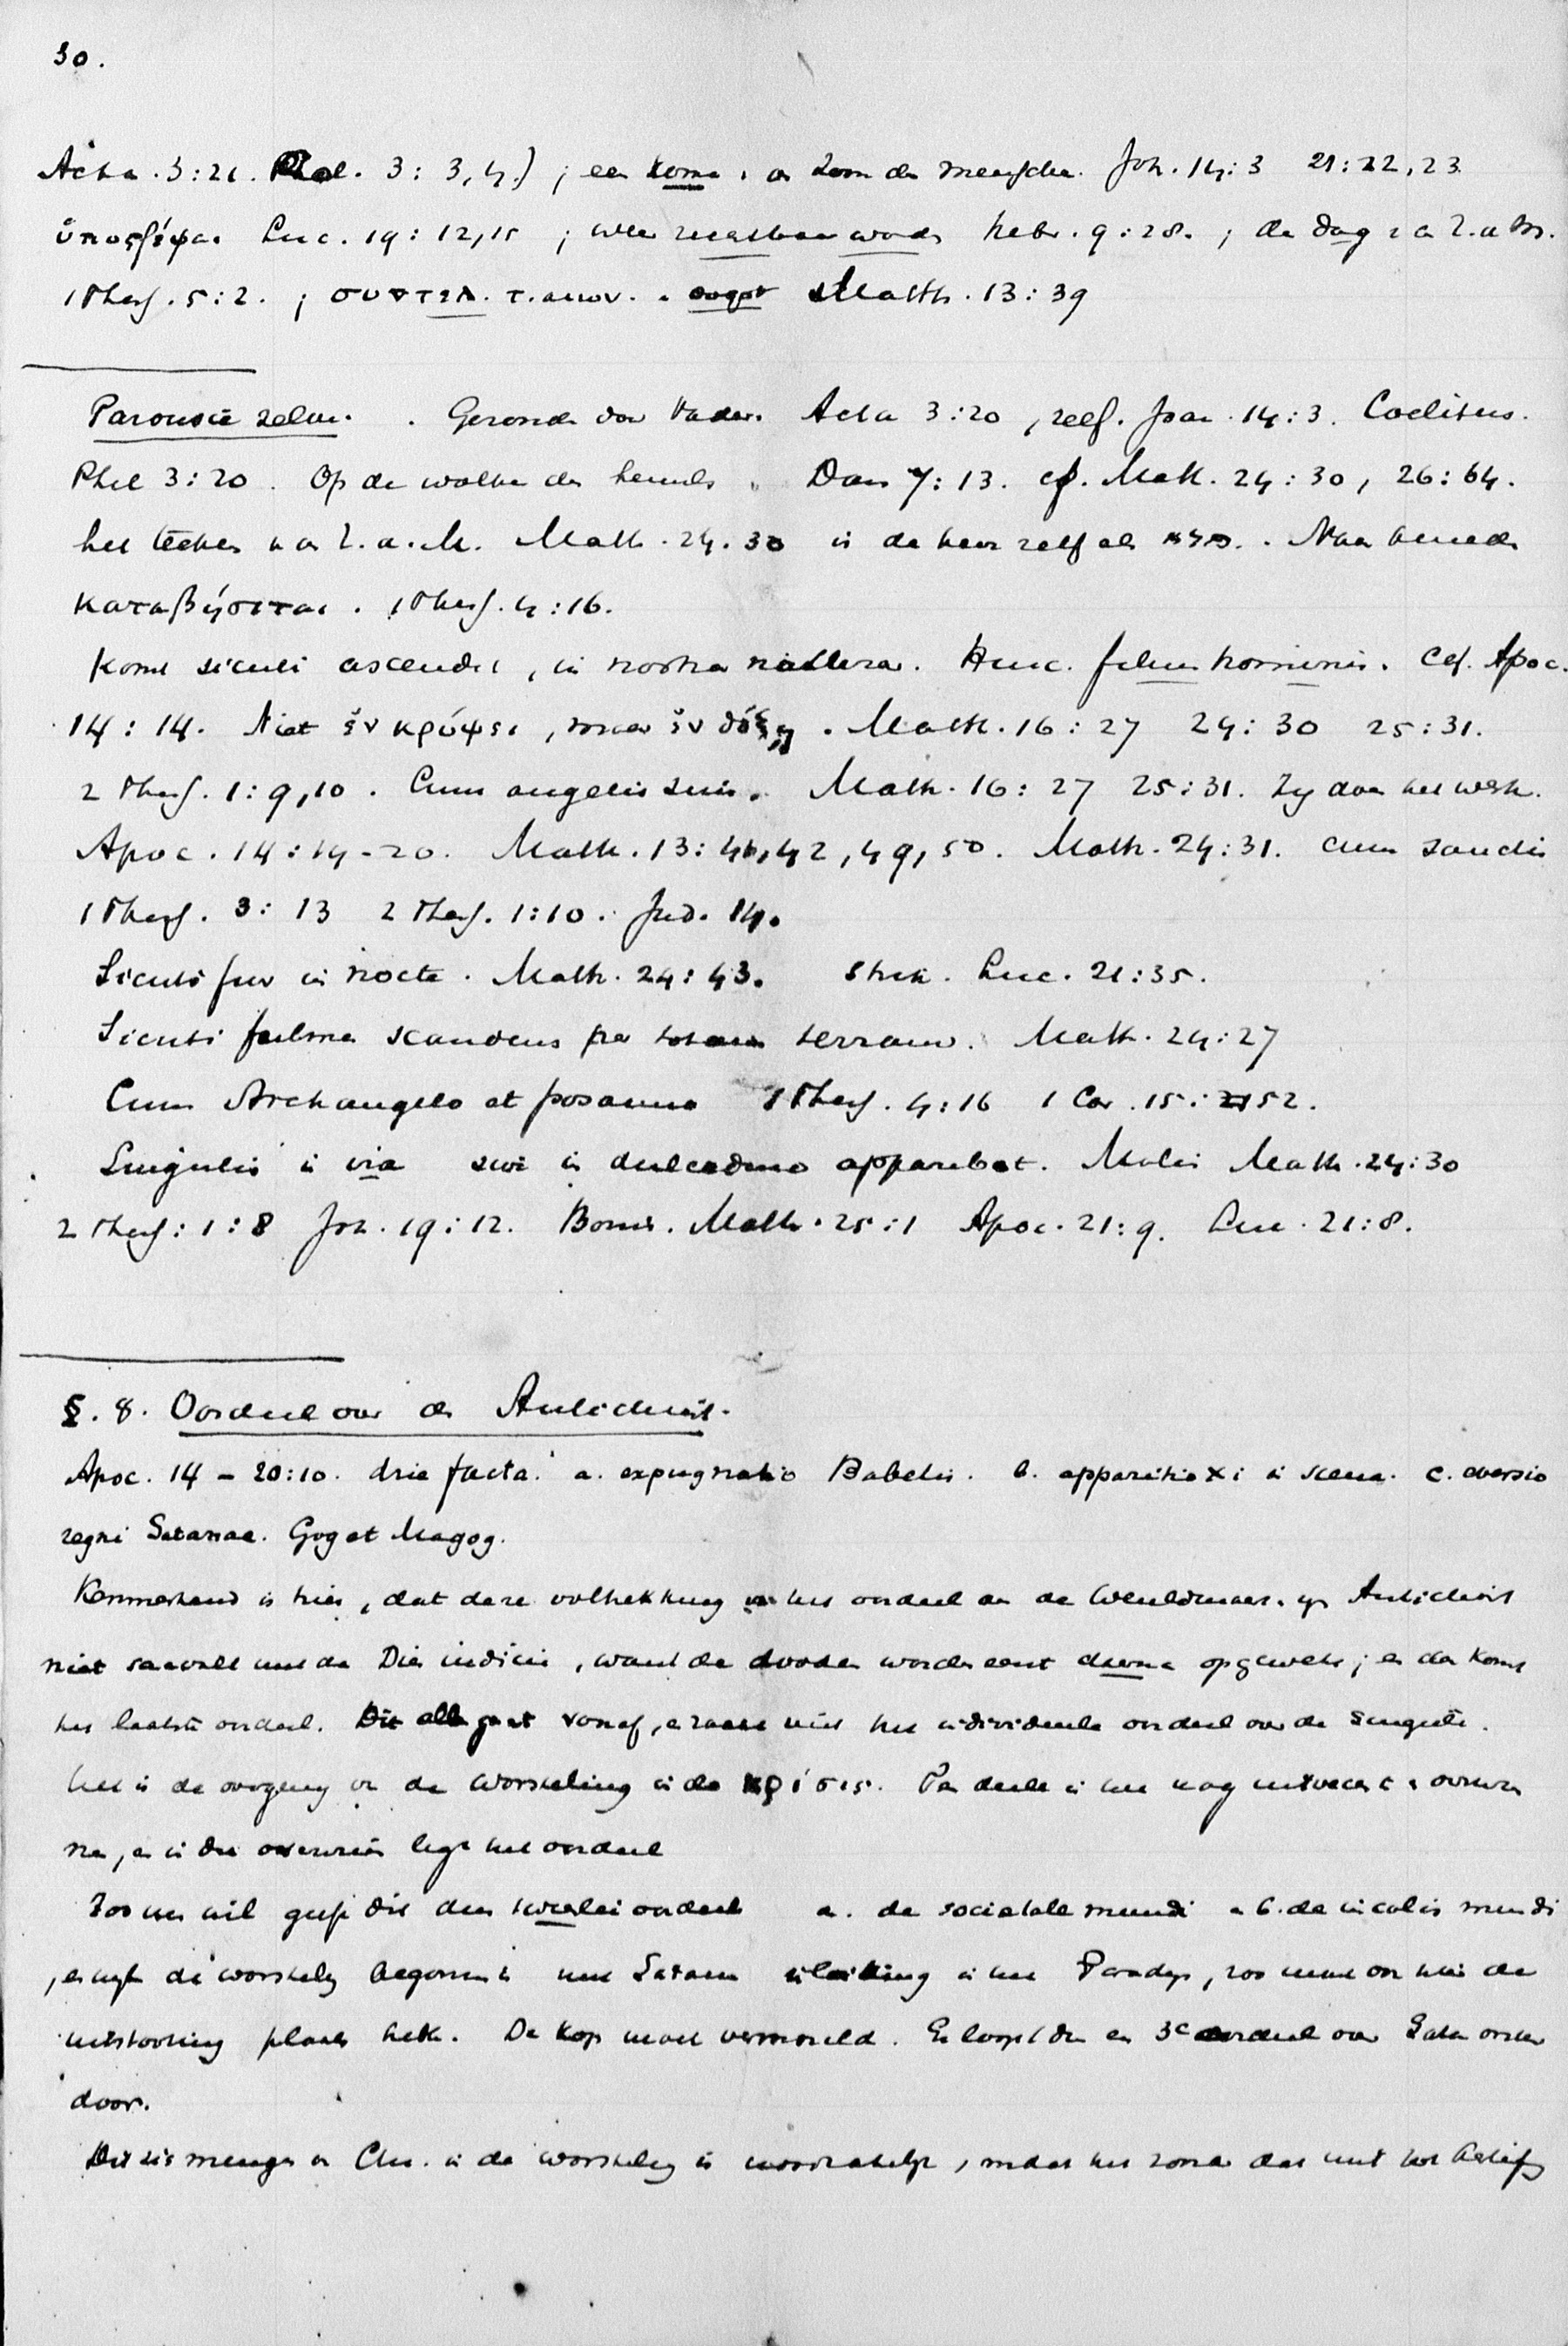 30.
Acta. 3:21. 3: 3,4.) ; een koma. v. d. Zoon des menschen. Joh. 14:3 21:22,23
ὑποστρέψαι Luc. 19:12,15 ; weer zichtbaar worden Hebr. 9:28. ; de dag v. d. Z. d. M.
1 Thess. 5:2. ; συντελ. τ. αιων. Matth. 13:39
Parousie zelve. . Gezonden door Vader. Acta 3:20, zelf. Joan. 14:3. Coelitus.
Phil 3:20. Op de wolken des hemels. Dan 7:13. cf. Matt. 24:30, 26:64.
het teeken v. d. Z. d. M. Matth. 24.30 is de heer zelf als . Naar beneden
καταβήσεται. 1 Thess. 4:16.
Komt sicuti ascendit, in nostra natura. Hinc. filius hominis. Cf. Apoc.
14:14. Niet ἐν κρύψει, maar ἐν δόξῃ. Matth. 16:27 24:30 25:31.
2 Thess. 1:9,10. Cum angelis suis. Matth. 16:27 25:31. Zij doen het werk.
Apoc. 14:14-20. Matth. 13:41,42,49,50. Matth. 24:31. cum sanctis
1 Thess. 3:13 2 Thess. 1:10. Jud. 14.
Sicuti fur in nocte. Matth. 24:43. strik. Luc. 21:35.
Sicuti fulmen scandens per totam terram. Matth. 24:27
Cum Archangelo et posauno 1 Thess. 4:16 1 Cor. 15:52.
Singulis in via sive in dulcedine apparebit. Malis Matth. 24:30
2 Thess: 1:8 Joh. 19:12. Bonis. Matth. 25:1 Apoc. 21:9. Luc. 21:8.
§. 8. Oordeel over den Antichrist.
Apoc. 14 – 20:10. drie facta. a. expugnatio Babelis. b. apparitio Xi in scena. c. eversio
regni Satanae. Gog et Magog.
Kenmerkend is hier, dat deze voltrekking van het oordeel aan de Wereldmacht en Antichrist
niet saamvalt met de Dies iudicii, want de dooden worden eerst daarna opgewekt; en dan komt
het laatste oordeel. Dit alles gaat vooraf, en raakt niet het individueele oordeel over de singuli.
Het is de overgang van de worsteling in de κρίσις. Ten deele is het nog
en in die overwin ligt het oordeel
Zoo men wil geeft dit dus tweeërlei oordeel a. de societate mundi en b. de incolis mundi
, en wijl de worsteling begonnen is met Satans inleiding in het Paradijs, zoo moet ook hier de
uitstooting plaats hebben. De kop moet vermorzeld. Er loopt dus een 3e oordeel over Satan onder
door.
Dit zich mengen v. Chr. in de worsteling is noodzakelijk, omdat het zonder dat niet tot